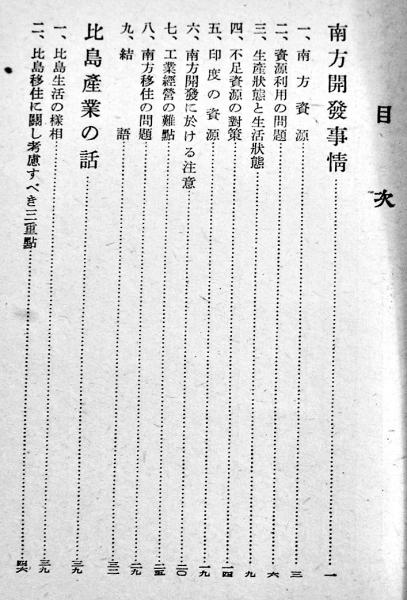 目次
南方開發事情……一
一、南方資源……三
二、資源利用の問題……六
三、生産狀態と生活狀態……九
四、不足資源の對策……一四
五、印度の資源……一九
六、南方開發に於ける注意……二〇
七、工業經營の難點……二五
八、南方移住の問題……二九
九、結語……三三
比島產業の話……三九
一、比島生活の樣相……三九
二、比島移住に關し考慮すべき三重點……四六